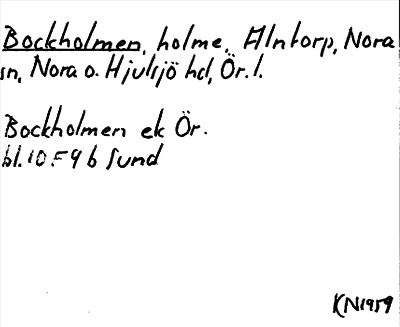 Bockholmen, holme, Alntorp, Nora
sn, Nora o. Hjulsjö hd, Ör. l.
Bockholmen ek Ör.
bl. 10 F 9 b Sund
KN1959